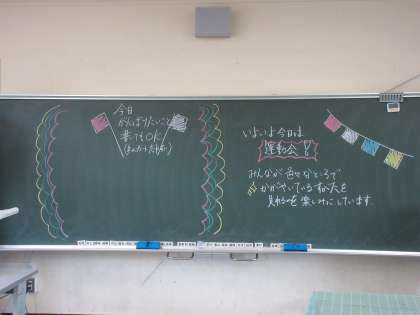 今日
がんばりたいこと
書いてOK
いよいよ今日は
運動会!
みんなが色々なところで
かがやいているすがたを
見れるのを楽しみにしています